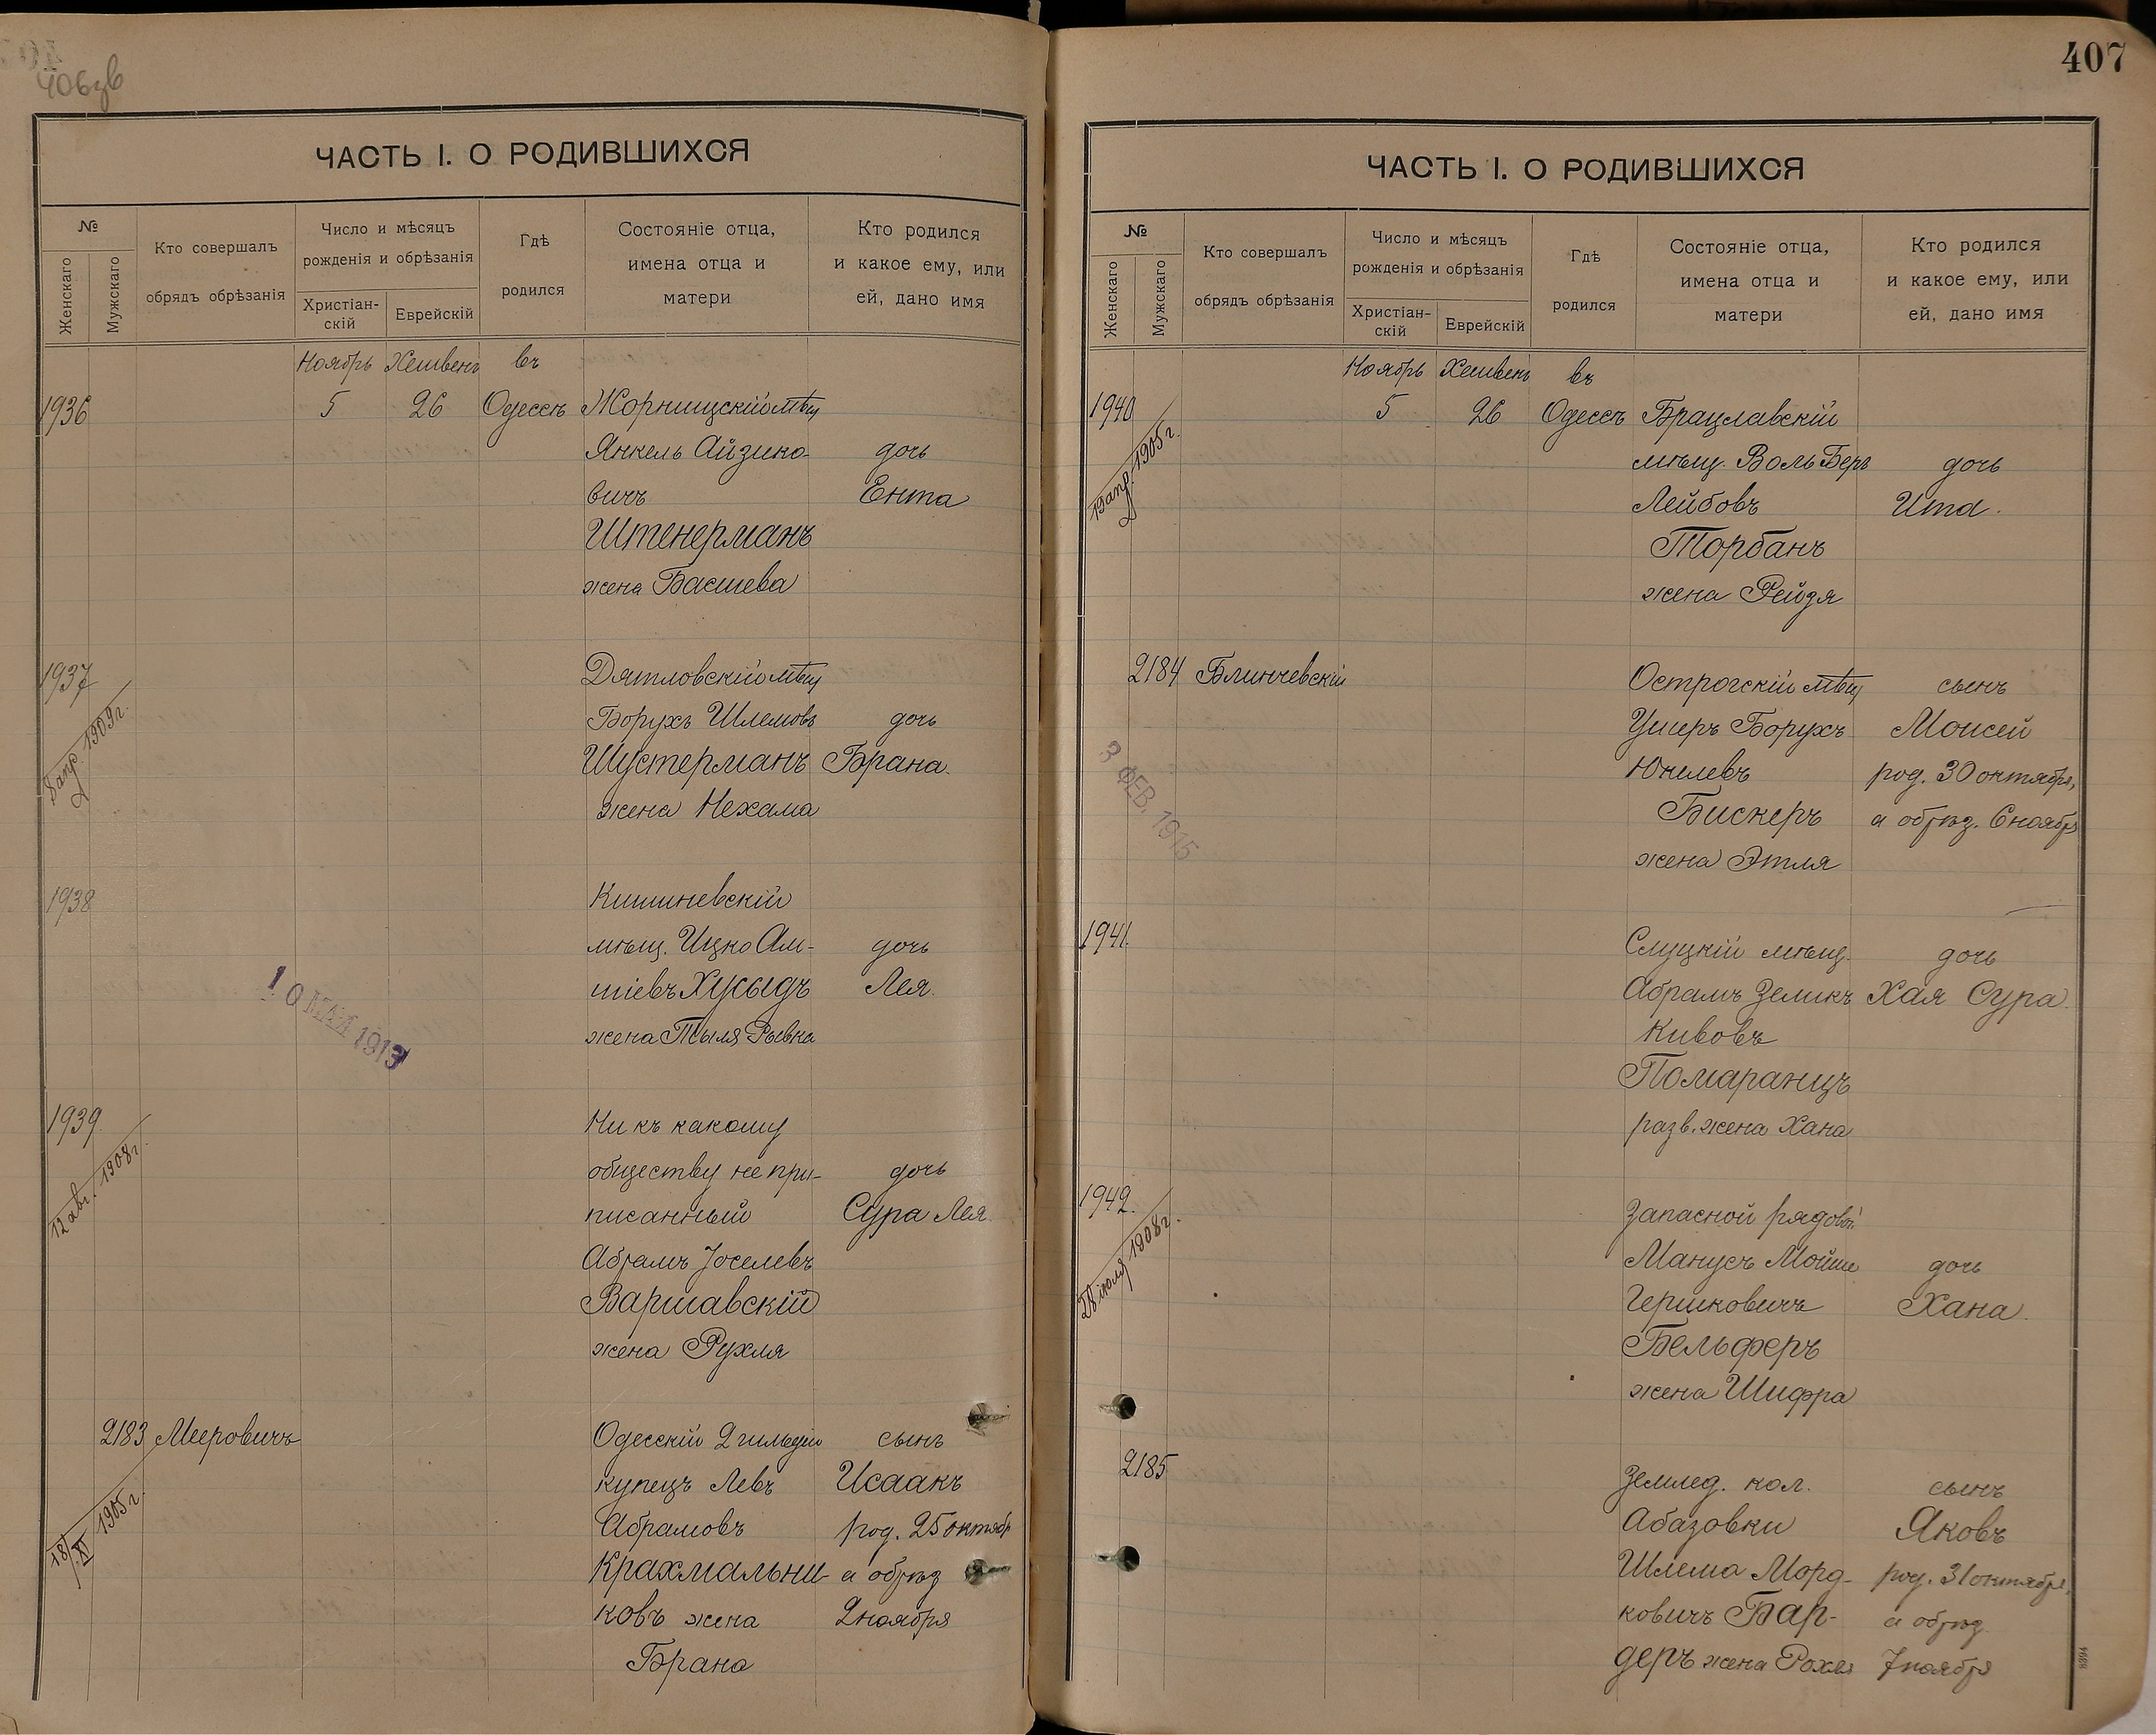 406зв
ЧАСТЬ I. О РОДИВШИХСЯ
№
Женскаго
Мужскаго
Кто совершалъ
обрядъ обрѣзанія
Число и мѣсяцъ
рожденія и обрѣзанія
Христіан-
скій
Еврейскій
Гдѣ
родился
Состояніе отца,
имена отца и
матери
Кто родился
и какое ему, или
ей, дано имя
Ноябрь Хешвенъ въ
1936 5 26 Одессѣ Жорнищскій мѣщ
Янкель Айзико- дочь
вичъ Ента
Штенерманъ
жена Басшева
1937 Дятловскій мѣщ
Борухъ Шлемовъ дочь
Шустерманъ Брана.
8 апр. 1909 г.
жена Нехама
1938 Кишиневскій
мѣщ. Ицко Ам- дочь
шіевъ Хусыдъ Лея.
10 МАЯ 1913
жена Тыля Рывка
1939. Ни къ какому
обществу не при- дочь
12 авг. 1908 г.
писанный Сура Лея.
Абрамъ Іоселевъ
Варшавскій
жена Рухля
2183 Мееровичъ Одесскій 2 гильдіи сынъ
купецъ Левъ Исаакъ
18/XI 1905 г.
Абрамовъ род. 25 октябр
Крахмальни- а обрѣз
ковъ жена 2 ноября
Брана
407
ЧАСТЬ I. О РОДИВШИХСЯ
№
Женскаго
Мужскаго
Кто совершалъ
обрядъ обрѣзанія
Число и мѣсяцъ
рожденія и обрѣзанія
Христіан-
скій
Еврейскій
Гдѣ
родился
Состояніе отца,
имена отца и
матери
Кто родился
и какое ему, или
ей, дано имя
Ноябрь Хешвенъ въ
1940 5 26 Одессѣ Брацлавскій
мѣщ. Воль Беръ дочь
19 апр. 1905 г.
Лейбовъ Ита.
Торбанъ
жена Рейзя
2184 Блинчевскій Острогскій мѣщ сынъ
Ушеръ Борухъ Моисей
Юкелевъ род. 30 октября,
3 ФЕВ. 1915
Бискеръ а обрѣз. 6 ноября
жена Этля
1941. Слуцкій мѣщ. дочь
Абрамъ Зеликъ Хая Сура.
Кивовъ
Помаранцъ
разв. жена Хана
1942. Запасной рядовой
Манусъ Мойше дочь
28 іюля 1908 г.
Гершковичъ Хана.
Бельферъ
жена Шифра
2185 Землед. кол. сынъ
Абазовки Яковъ
Шлема Морд- род. 31 октября,
ковичъ Бар- а обрѣз.
деръ жена Рохля 7 ноября